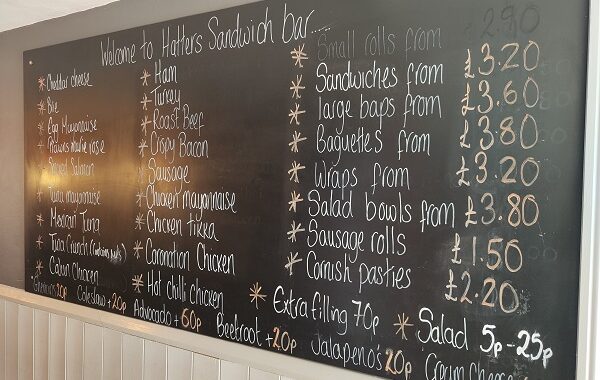 Welcome to Hatters Sandwich bar...
* Cheddar cheese
* Brie
* Egg Mayonnaise
* Prawns marie rose
Smoked Salmon
* Tuna mayonnaise
* Mexican Tuna
* Tuna Crunch
* Cajun Chicken
* Ham
* Turkey
* Roast Beef
* Crispy Bacon
* Sausage
* Chicken mayonnaise
* Chicken tikka
* Coronation Chicken
* Hot chilli chicken
* Small rolls from 2.90
* Sandwiches from £3.20
* large baps from £3.60
* Baguettes from £3.80
* Wraps from £3.20
* Salad bowls from £3.80
* Sausage rolls £1.50
* Cornish pasties £2.20
* Extra filling 70p * Salad 5p - 25p
20p Coleslaw + 20p Advocado + 60p Beetroot + 20p Jalapeno's 20p Cream Cheese